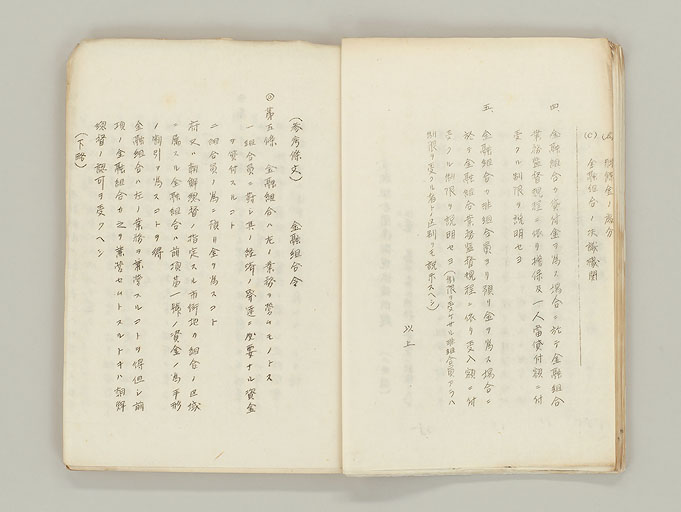 (A) 剰余金ノ処分
(C) 金融組合ノ決議機関
四、金融組合カ貸付金ヲ為ス場合ニ於テ金融組合
業務監督規程ニ依リ担保及一人当貸付額ニ付
受クル制限ヲ説明セヨ
五、金融組合カ非組合員ヨリ預リ金ヲ為ス場合ニ
於テ金融組合業務監督規程ニ依リ受入額ニ付
受クル制限ヲ説明セヨ(制限ヲ受ケサル非組合員アラハ
制限ヲ受クル者トノ区別ヲモ説示スヘシ)
以上
(参考條文) 金融組合令
◎第五條 金融組合ハ左ノ業務ヲ営ムモノトス
一 組合員ニ対シ其ノ経済ノ発達ニ必要ナル資金
ヲ貸付スルコト
二 組合員ノ為ニ預リ金ヲ為スコト
府又ハ朝鮮総督ノ指定スル市街地ヲ組合ノ区域
ニ属スル金融組合ハ前項第一號ノ資金ノ為手形
ノ割引ヲ為スコトヲ得
金融組合ハ左ノ業務ヲ兼営スルコトヲ得但シ前
項ノ金融組合カ之ヲ兼営セムトスルトキハ朝鮮
総督ノ認可ヲ受クヘシ
(下略)